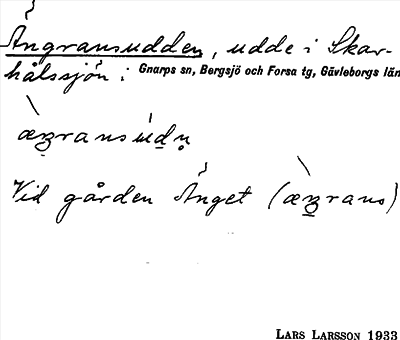 Ängransudden, udde i Skar-
hålssjön i Gnarps sn, Bergsjö och Forsa tg, Gävleborgs län
Vid gården Änget
LARS LARSSON 1933